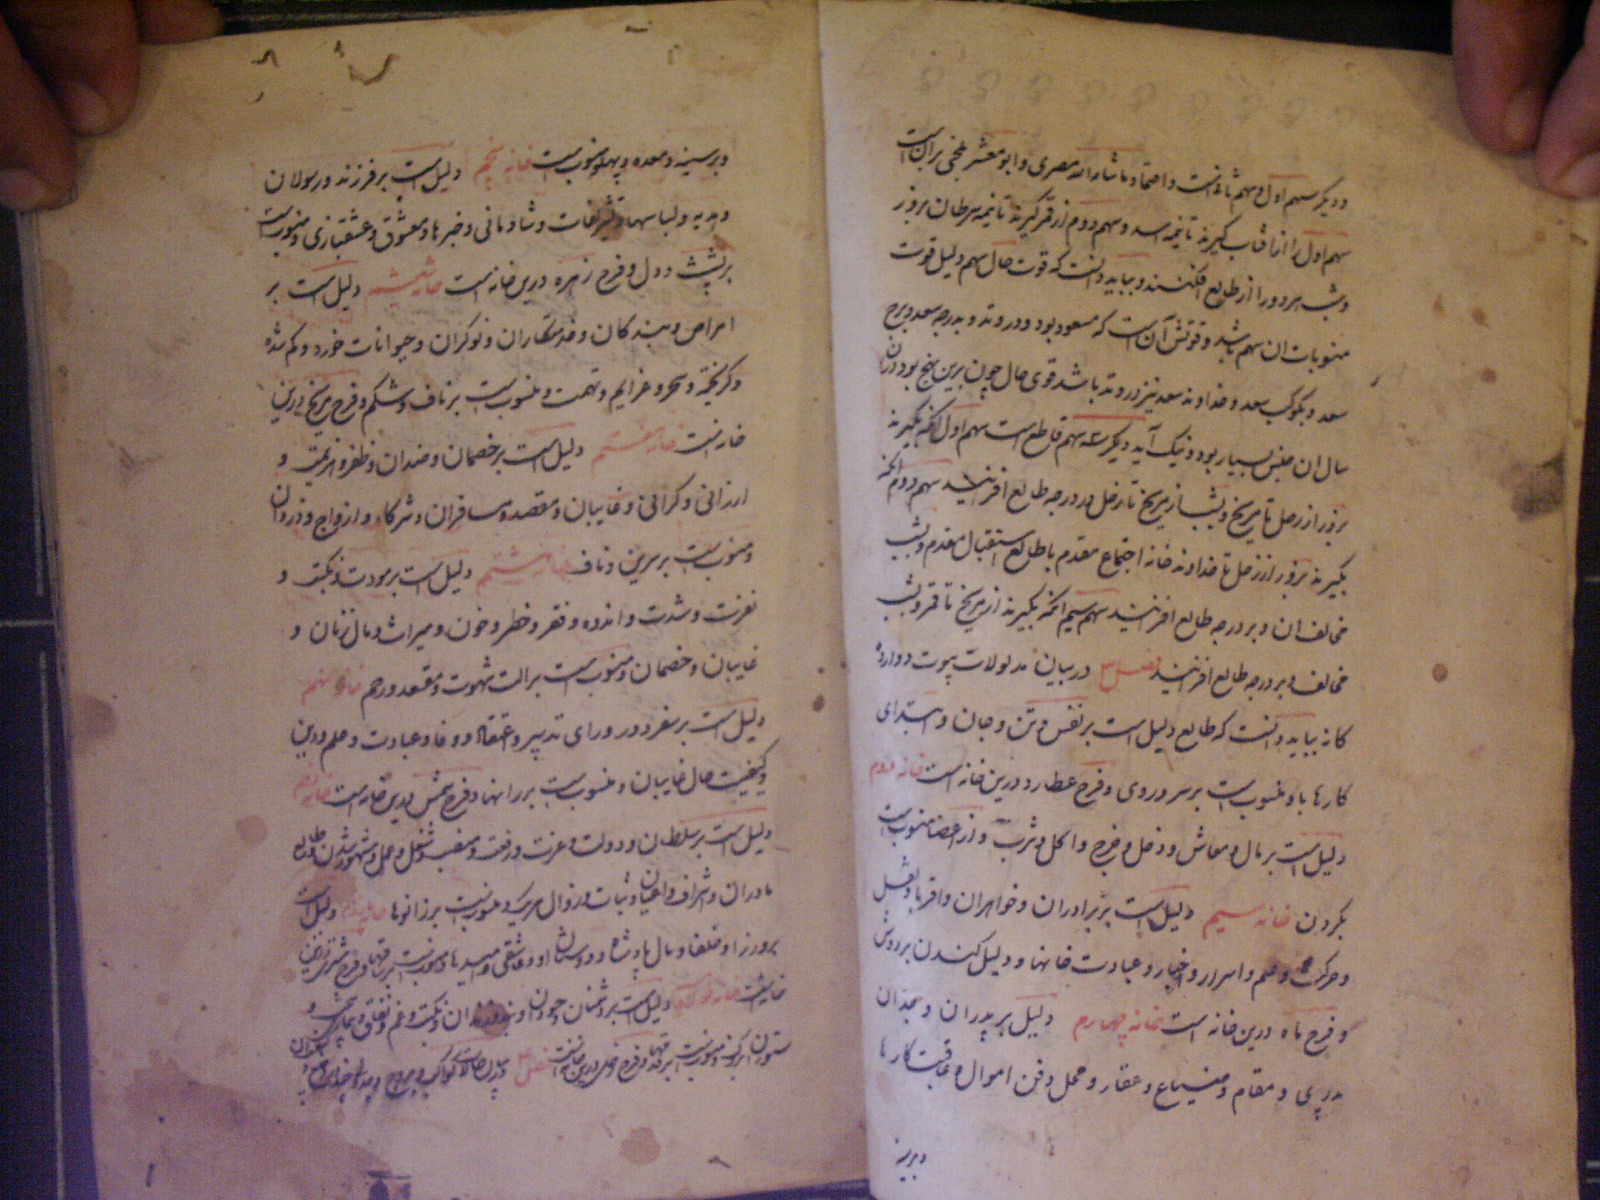 و دیگر سهم اول و سهم ثانیست و اعتماد ما شاء الله مصری و ابو معشر بلخی بران است
سهم اول را از افتاب گیرند تا نیمه اسد و سهم دوم از قمر گیرند تا نیمه سرطان بروز
و شب هر دو را از طالع افکنند و بباید دانست که قوت حال سهم دلیل قوت
منسوبات ان سهم باشد و قوتش آن است که مسعود بود و در وتد و بدرجه سعد و برج
سعد و بکوکب سعد و خداوند سعد نیز در وتد باشد قوی حال چون برین نهج بود دران
سال ان جنس بسیار بود و نیک آید دیگر سه سهم قاطع است سهم اول انکه بگیرند
بروز از زحل تا مریخ و بشب از مریخ تا زحل و بر درجه طالع افزایند سهم دوم انکه
بگیرند بروز از زحل تا خداوند خانه اجتماع مقدم یا طالع استقبال مقدم و بشب
مخالف ان و بر درجه طالع افزایند سهم سیم انکه بگیرند از مریخ تا قمر و بشب
مخالف و بر درجه طالع افزایند فصل در بیان مدلولات بیوت دوازده
کانه بباید دانست که طالع دلیل است بر نفس و تن و جان و ابتدای
کارها و منسوب است بر سر و روی و فرح عطارد درین خانه است خانه دوم
دلیل است بر مال و معاش و دخل و خرج و اکل و شرب و از اعضا منسوب است
بکردن خانه سیم دلیل است بر برادران و خواهران و اقربا و نقل
و حرکت و علم و اسرار و اخبار و عبادت خانها و دلیل کند بر دوش
و فرح ماه درین خانه است خانه چهارم دلیل بر پدران و جدان
پدری و مقام و ضیاع و عقار و محل دفن اموال و عاقبت کارها
و بر سینه
و بر سینه و معده و پهلو منسوب است خانه پنجم دلیل است بر فرزند و رسولان
و هدیه و لباسها و تشریفات و شادمانی و خبرها و معشوق و عشقبازی و منسوب است
بر پشت و دل و فرح زهره درین خانه است خانه ششم دلیل است بر
امراض و بندکان و خدمتکاران و نوکران و حیوانات خورد و کم شده
و کریخته و سحر و عزایم و تهمت و منسوب است بر ناف و شکم و فرح مریخ درین
خانه است خانه هفتم دلیل است بر خصمان و ضدان و ظفر و هزیمت و
ارزانی و کرانی و غایبان و مقصد مسافران و شرکا و ازواج و دزدان
و منسوب است بر سرین و ناف خانه هشتم دلیل است بر موت و نکبت و
نفرت و شدت و اندوه و فقر و خطر و خون و میراث و مال زنان و
غایبان و خصمان و منسوب است بر الت شهوت و مقعد و رحم خانه نهم
دلیل است بر سفر دور و رای تدبیر و اعتقاد و وفا و عبادت و علم و دین
و کیفیت حال غایبان و منسوب است بر رانها و فرح شمس درین خانه است خانه دهم
دلیل است بر سلطان و دولت و عزت و رفعت و منصب و شغل و عمل و مشهور شدن و
مادران و اشراف و اعیان و ثبات و زوال هر یک و منسوب است بر زانوها خانه یازدهم دلیل است
بر وزرا و خلفا و مال پادشاه و دوستان او و عاشقی و امیدها و منسوب است بر ساقها و فرح مشتری درین
خانه است خانه دوازدهم دلیل است بر دشمنان و حسودان و بند و زندان و نکبت و غم و نفاق و
ستوران بزرک و منسوب است بر قدمها و فرح زحل درین خانه است فصل در بیان حالات کواکب و بروج